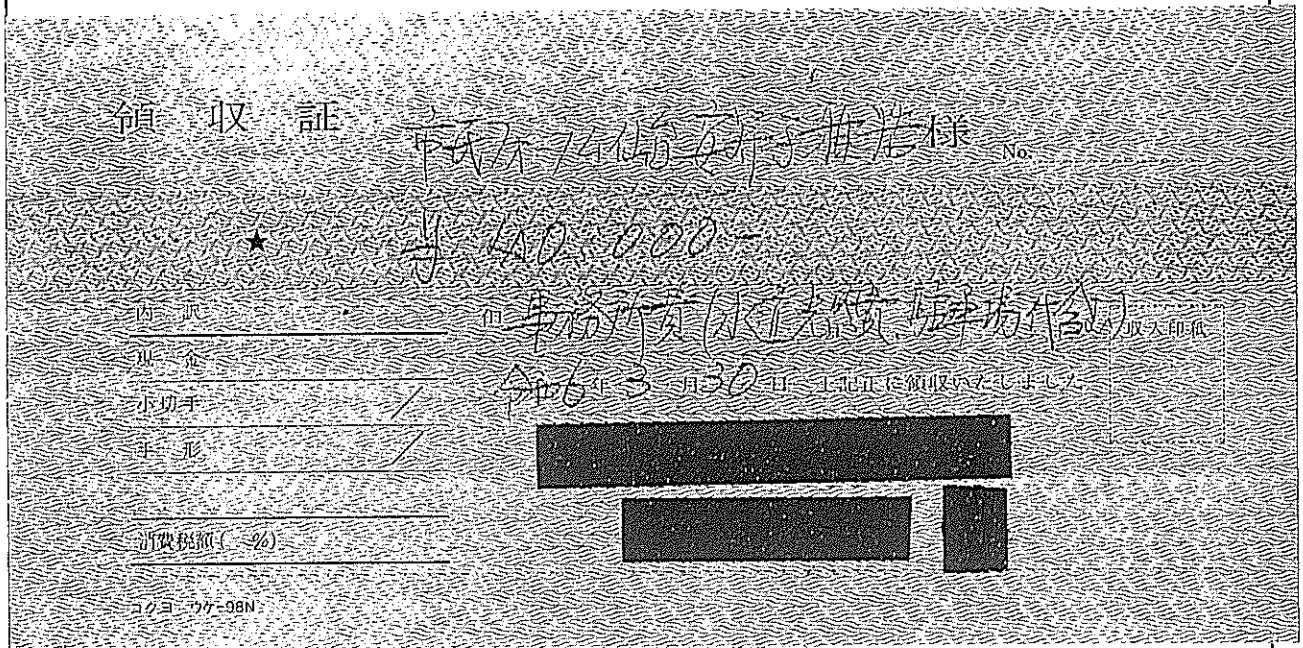 領収証 様 No.
★ ¥40,000-
内訳 但 事務所費(水道光熱費、駐車場代含) 収入印紙
現金
小切手 令和6年3月30日 上記正に領収いたしました
手形
消費税額( %)
コクヨ ウケ-98N